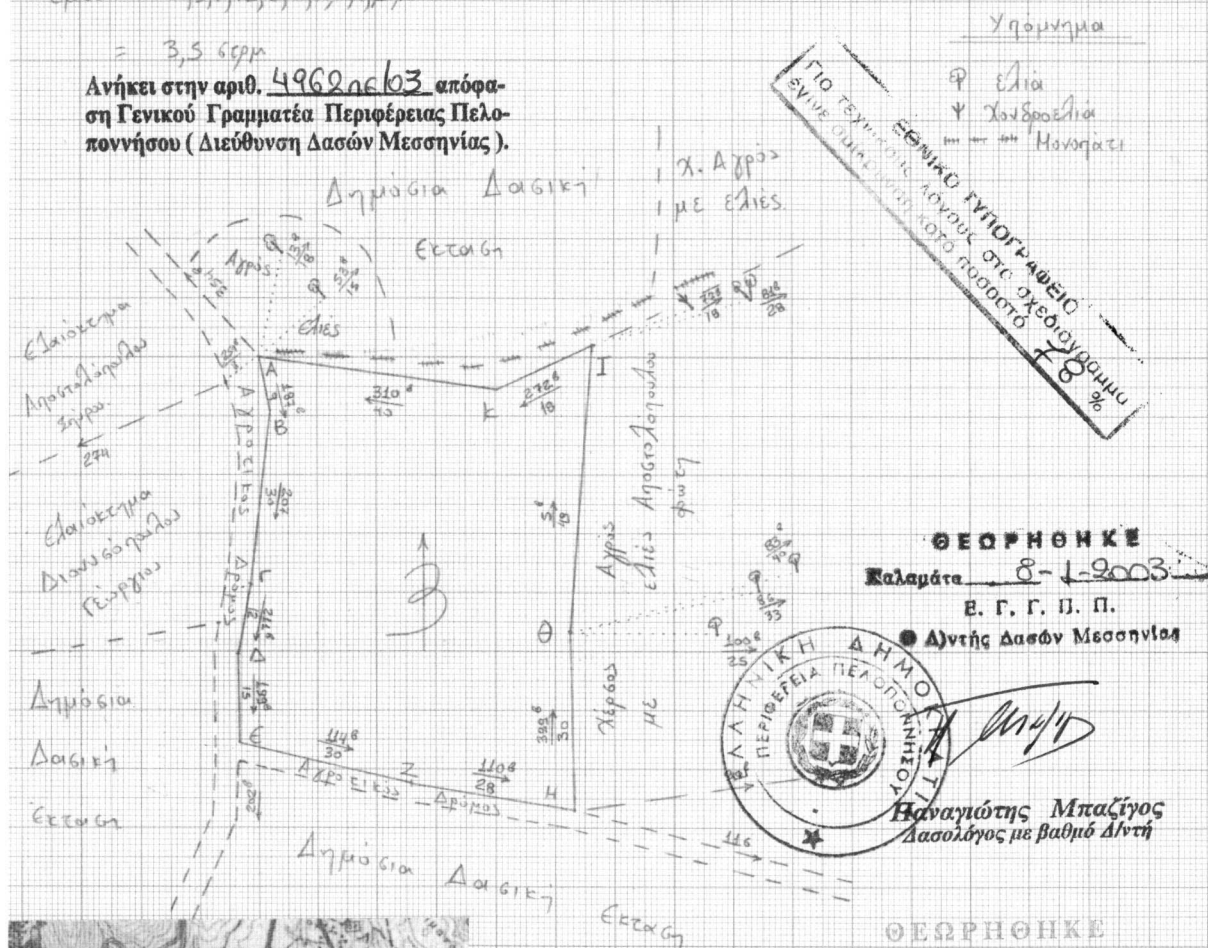 = 3,5 στρμ
Ανήκει στην αριθ. 4962πε/03 απόφα-
ση Γενικού Γραμματέα Περιφέρειας Πελο-
ποννήσου ( Διεύθυνση Δασών Μεσσηνίας ).
Υπόμνημα
ελιά
Χονδροελιά
Μονοπάτι
ΕΘΝΙΚΟ ΤΥΠΟΓΡΑΦΕΙΟ
ΓΙΑ ΤΕΧΝΙΚΟΥΣ ΛΟΓΟΥΣ ΣΤΟ ΣΧΕΔΙΑΓΡΑΜΜΑ
ΕΓΙΝΕ ΣΜΙΚΡΥΝΣΗ ΚΑΤΑ ΠΟΣΟΣΤΟ 78 %
Δημόσια Δασική
Εκταση
Χ. Αγρός
με ελιές
Αγρός
ελιές
Ελαιόκτημα
Αποστολόπουλου
Σπύρου
274
Ελαιόκτημα
Διονυσόπουλου
Γεώργιου
Δημόσια
Δασική
Εκταση
Αγροτικός Δρόμος
Α
Β
Γ
Δ
Ε
Ζ
Η
Θ
Ι
Κ
310
40
272
18
207
114
30
110
28
399
30
100
25
116
202
3
Χέρσος Αγρός
με ελιές Αποστολόπουλου
φώτη
Αγροτικού Δρόμος
Δημόσια Δασική
Εκταση
ΘΕΩΡΗΘΗΚΕ
Καλαμάτα 8-1-2003
Ε. Γ. Γ. Π. Π.
Δ)ντής Δασών Μεσσηνίας
ΕΛΛΗΝΙΚΗ ΔΗΜΟΚΡΑΤΙ
ΠΕΡΙΦΕΡΕΙΑ ΠΕΛΟΠΟΝΝΗΣΟΥ
Παναγιώτης Μπαζίγος
Δασολόγος με βαθμό Δ/ντή
ΘΕΩΡΗΘΗΚΕ